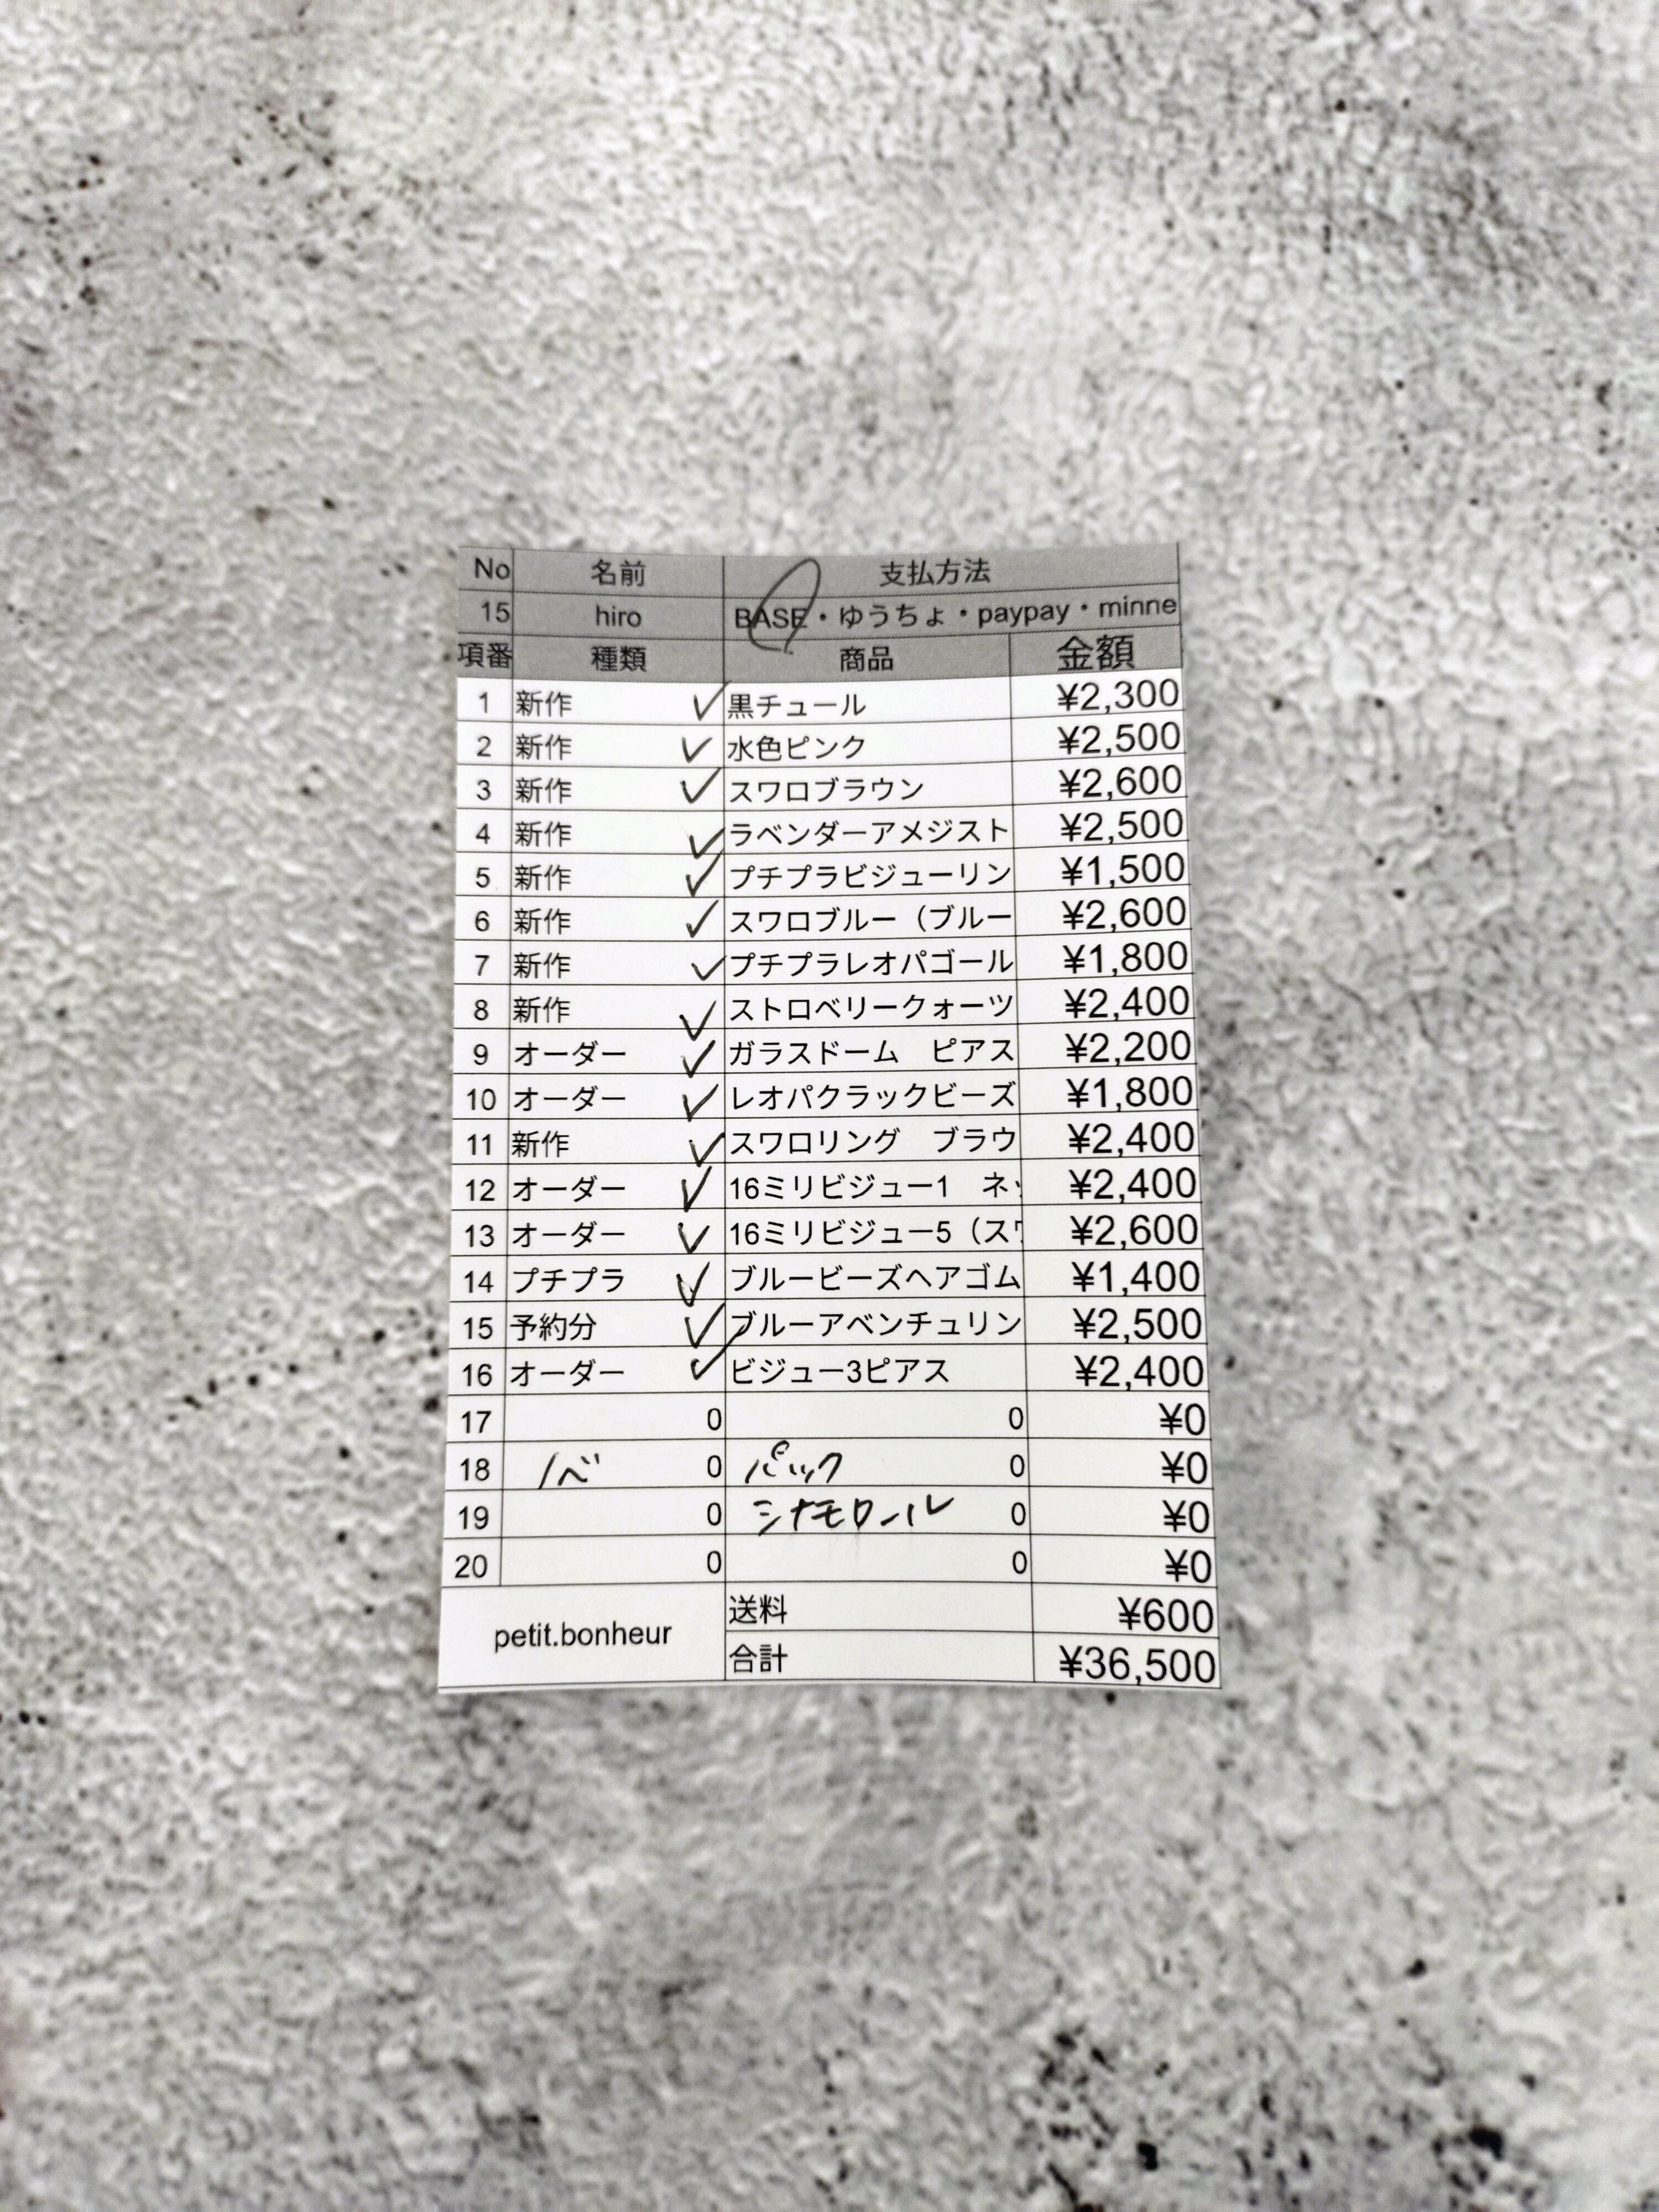 No 名前 支払方法
15 hiro BASE・ゆうちょ・paypay・minne
項番 種類 商品 金額
1 新作 ✓ 黒チュール ¥2,300
2 新作 ✓ 水色ピンク ¥2,500
3 新作 ✓ スワロブラウン ¥2,600
4 新作 ✓ ラベンダーアメジスト ¥2,500
5 新作 ✓ プチプラビジューリン ¥1,500
6 新作 ✓ スワロブルー（ブルー ¥2,600
7 新作 ✓ プチプラレオパゴール ¥1,800
8 新作 ✓ ストロベリークォーツ ¥2,400
9 オーダー ✓ ガラスドーム　ピアス ¥2,200
10 オーダー ✓ レオパクラックビーズ ¥1,800
11 新作 ✓ スワロリング　ブラウ ¥2,400
12 オーダー ✓ 16ミリビジュー1　ネッ ¥2,400
13 オーダー ✓ 16ミリビジュー5（スワ ¥2,600
14 プチプラ ✓ ブルービーズヘアゴム ¥1,400
15 予約分 ✓ ブルーアベンチュリン ¥2,500
16 オーダー ✓ ビジュー3ピアス ¥2,400
17 0 0 ¥0
18 ノベ 0 パック 0 ¥0
19 0 シナモロール 0 ¥0
20 0 0 ¥0
petit.bonheur 送料 ¥600
合計 ¥36,500